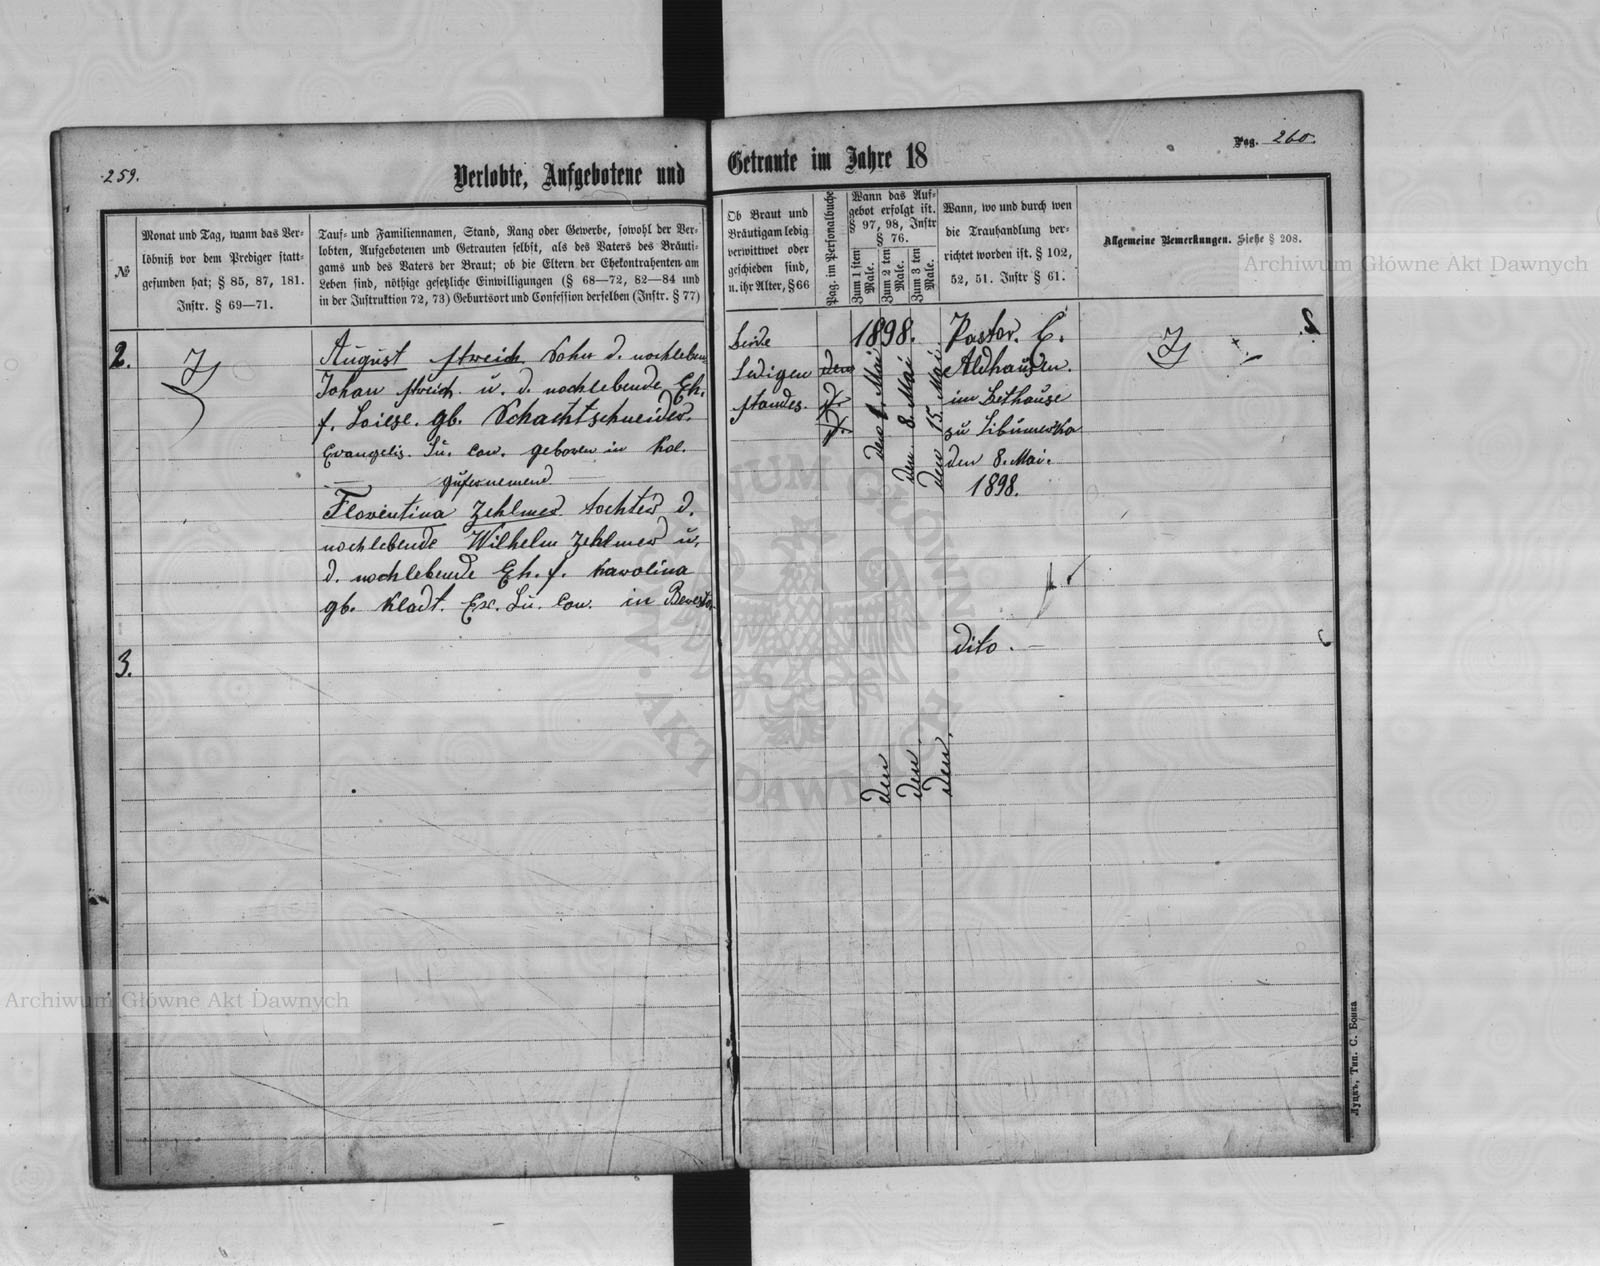 259.
Verlobte, Aufgebotene und
Getraute im Jahre 18
Pag. 260.
№
Monat und Tag, wann das Ver-
löbniß vor dem Prediger statt-
gefunden hat; § 85, 87, 181.
Instr. § 69—71.
Tauf- und Familiennamen, Stand, Rang oder Gewerbe, sowohl der Ver-
lobten, Aufgebotenen und Getrauten selbst, als des Vaters des Bräuti-
gams und des Vaters der Braut; ob die Eltern der Ehekontrahenten am
Leben sind, nöthige gesetzliche Einwilligungen (§ 68—72, 82—84 und
in der Instruktion 72, 73) Geburtsort und Confession derselben (Instr. § 77)
Ob Braut und
Bräutigam ledig
verwittwet oder
geschieden sind,
u. ihr Alter, § 66
Pag. im Personalbuche
Wann das Auf-
gebot erfolgt ist.
§ 97, 98, Instr
§ 76.
Zum 1 sten
Male.
Zum 2 ten
Male.
Zum 3 ten
Male.
Wann, wo und durch wen
die Trauhandlung ver-
richtet worden ist. § 102,
52, 51. Instr § 61.
Allgemeine Bemerkungen. Siehe § 208.
2.
August Streich Sohn d. nochleben
Johan Streich u. d. nochlebende Eh.
f. Loiese gb. Schachtschneider.
Evangelis. Lu. Con. geboren in Kol.
Florentina Zehlmer tochter d.
nochlebende Wilhelm Zehlmer u.
d. nochlebende Eh. f. Karolina
gb. Kladt. Ev. Lu. Con. in
beide
Ledigen
standes.
1898.
den 1. Mai
den 8. Mai
den 15. Mai
Pastor. C.
Aldhausen.
im Bethause
zu
den 8. Mai.
1898.
3.
den
den
den
dito.
Archiwum Główne Akt Dawnych
Archiwum Główne Akt Dawnych
Луцкъ, Тип. С. Бонка